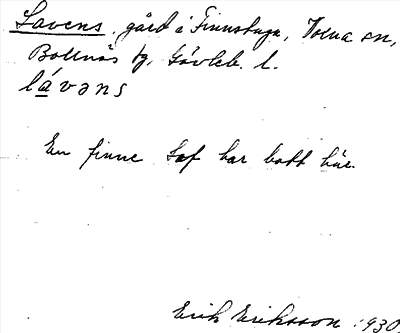 Lavens, gård å Finnstuga, Voxna sn,
Bollnäs tg, Gävleb. l.
lávəns
En finne Laf har bott här.
Erik Eriksson 1930.